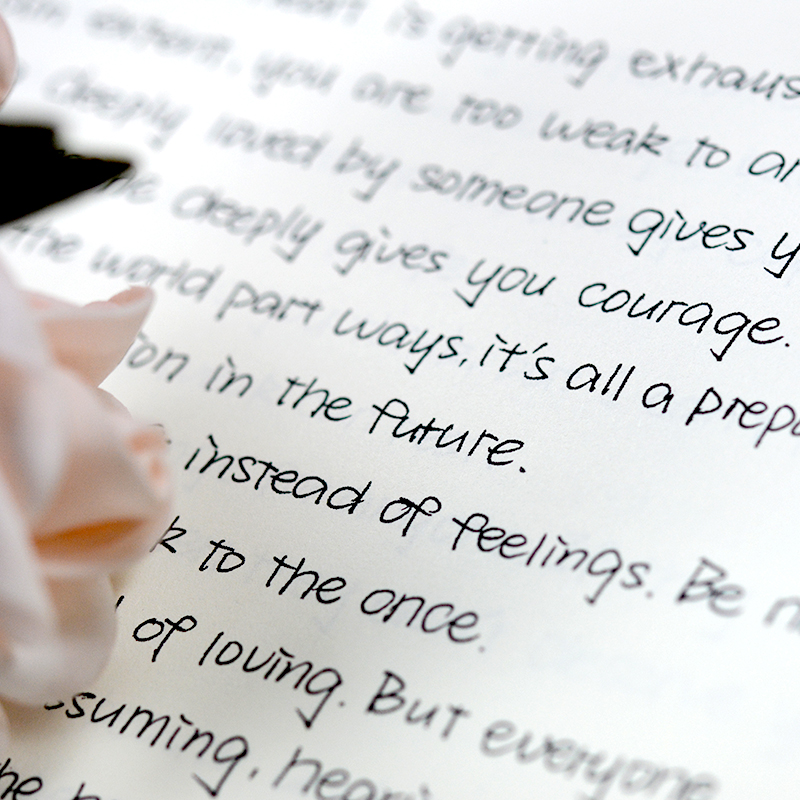 is getting exhaus
extent, you are too weak to ar
deeply loved by someone gives y
deeply gives you courage.
the world part ways, it's all a prepa
ion in the future.
instead of feelings. Be n
k to the once.
of loving. But everyone
ssuming, heari
he